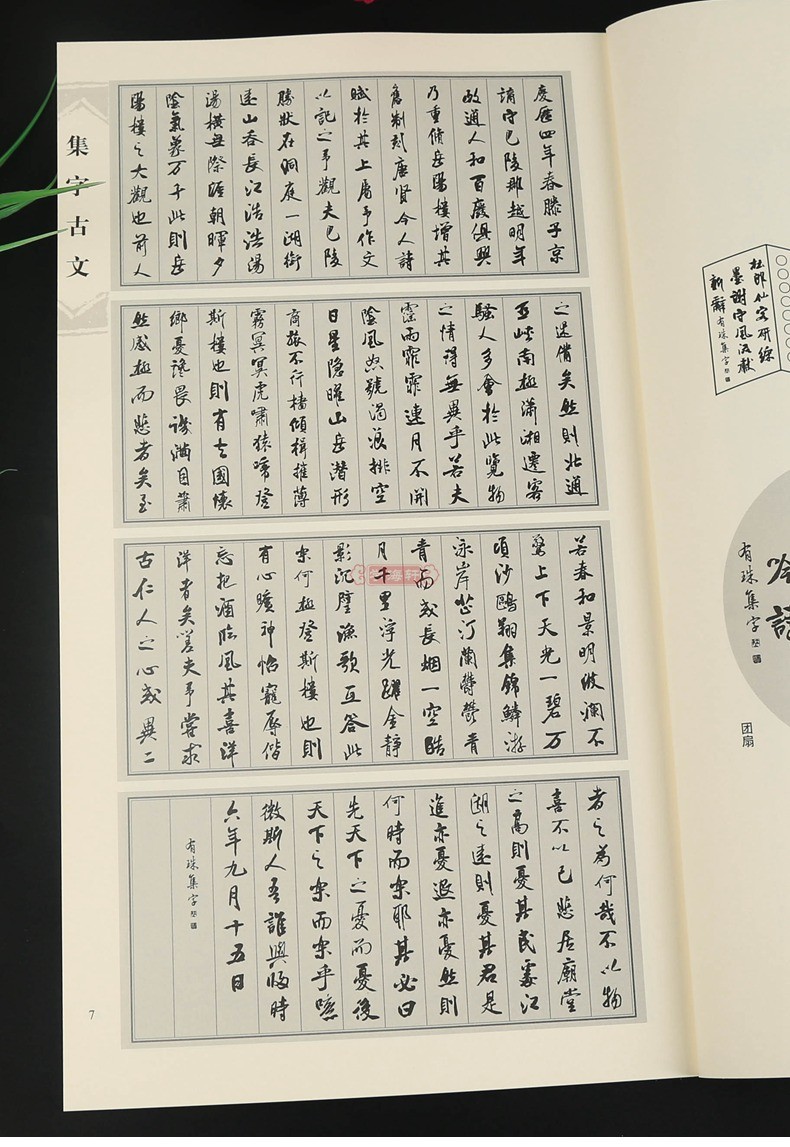 集字古文
慶曆四年春滕子京
謫守巴陵郡越明年
政通人和百廢俱興
乃重脩岳陽樓增其
舊制刻唐賢今人詩
賦於其上屬予作文
以記之予觀夫巴陵
勝狀在洞庭一湖銜
遠山吞長江浩浩湯
湯橫無際涯朝暉夕
陰氣象万千此則岳
陽樓之大觀也前人
之述備矣然則北通
巫峽南極瀟湘遷客
騷人多會於此覽物
之情得無異乎若夫
霪雨霏霏連月不開
陰風怒號濁浪排空
日星隱曜山岳潛形
商旅不行檣傾楫摧薄
霧冥冥虎嘯猿啼登
斯樓也則有去國懷
鄉憂讒畏譏滿目蕭
然感極而悲者矣至
若春和景明波瀾不
驚上下天光一碧万
頃沙鷗翔集錦鱗游
泳岸芷汀蘭鬱鬱青
青而或長烟一空皓
月千里浮光躍金靜
影沉璧漁歌互答此
樂何極登斯樓也則
有心曠神怡寵辱偕
忘把酒臨風其喜洋
洋者矣嗟夫予嘗求
古仁人之心或異二
者之為何哉不以物
喜不以己悲居廟堂
之高則憂其民處江
湖之遠則憂其君是
進亦憂退亦憂然則
何時而樂耶其必曰
先天下之憂而憂後
天下之樂而樂乎噫
微斯人吾誰與歸時
六年九月十五日
有珠集字
7
杜郎仙客研綜
墨謝守風流獻
新辭
有珠集字
有珠集字
团扇
海轩